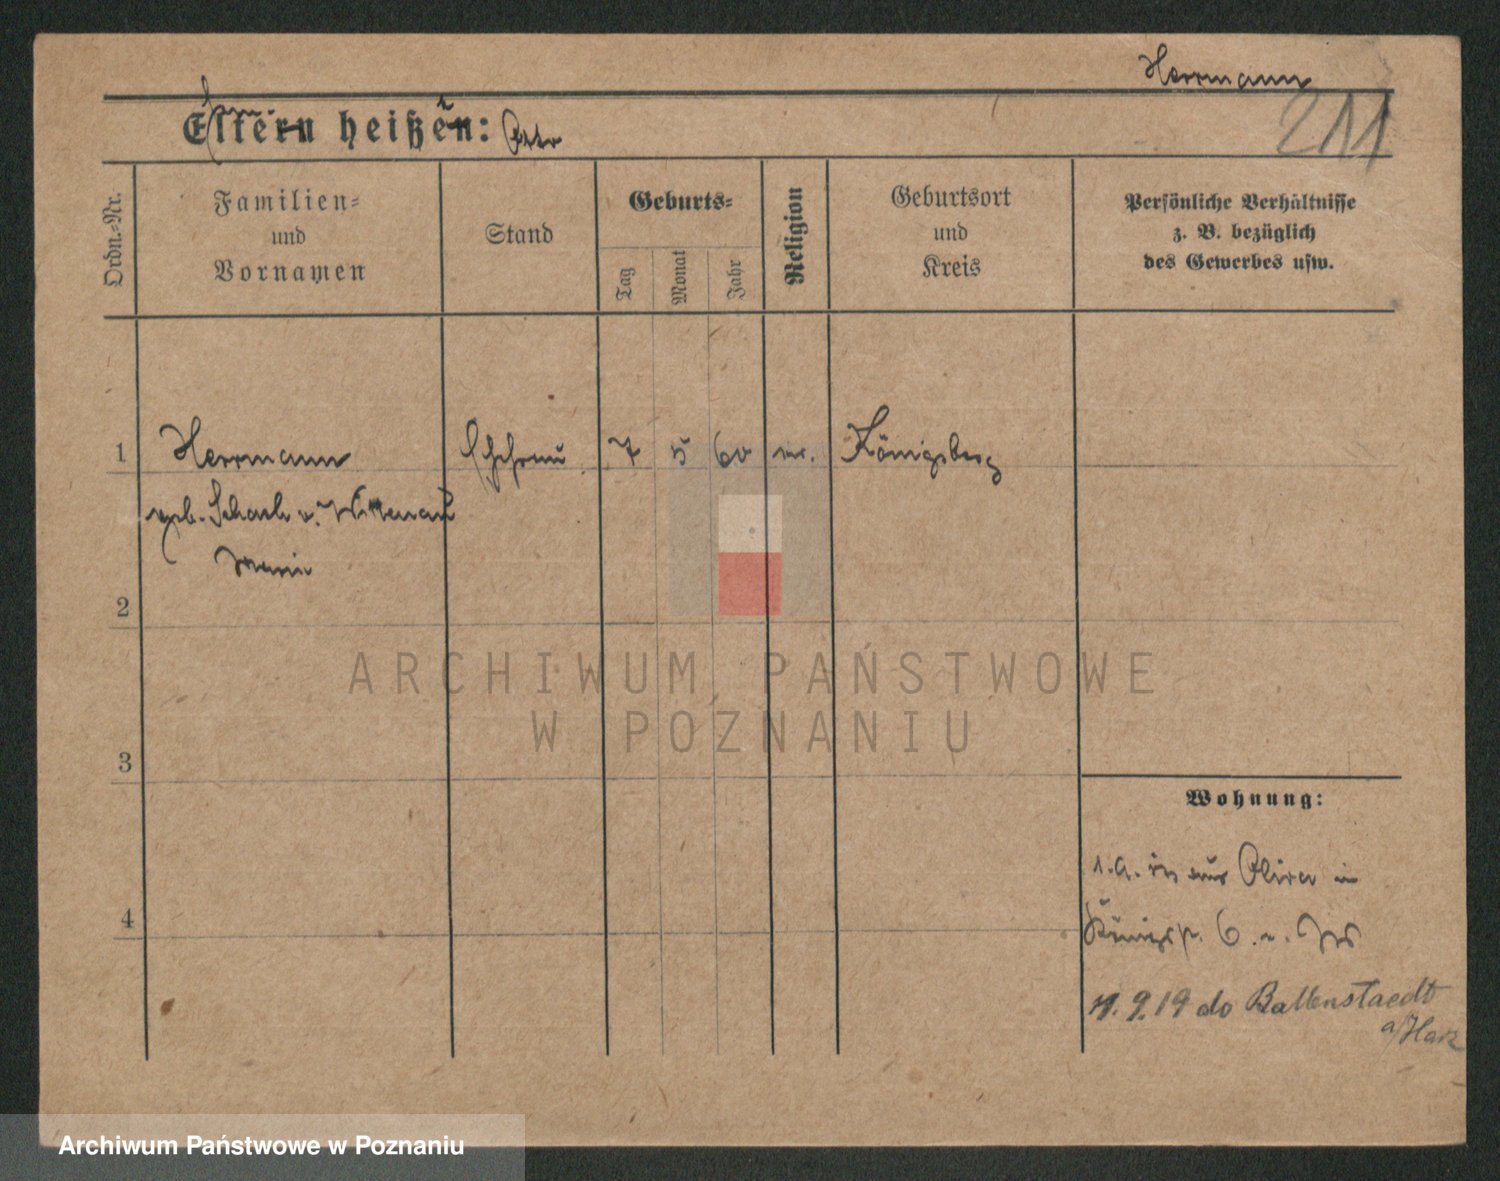 Herrmann
211
Eltern heißen: Otto
Ordn.-Nr.
Familien-
und
Vornamen
Stand
Geburts-
Tag
Monat
Jahr
Religion
Geburtsort
und
Kreis
Persönliche Verhältnisse
z. B. bezüglich
des Gewerbes usw.
1
Herrmann
Ehefrau
7
5
60
ev.
Königsberg
geb. Schach v. Wittenau
Marie
2
ARCHIWUM PAŃSTWOWE
W POZNANIU
3
Wohnung:
4
aus Oliva in
6
9. 19 do Ballenstaedt
a/Harz
Archiwum Państwowe w Poznaniu